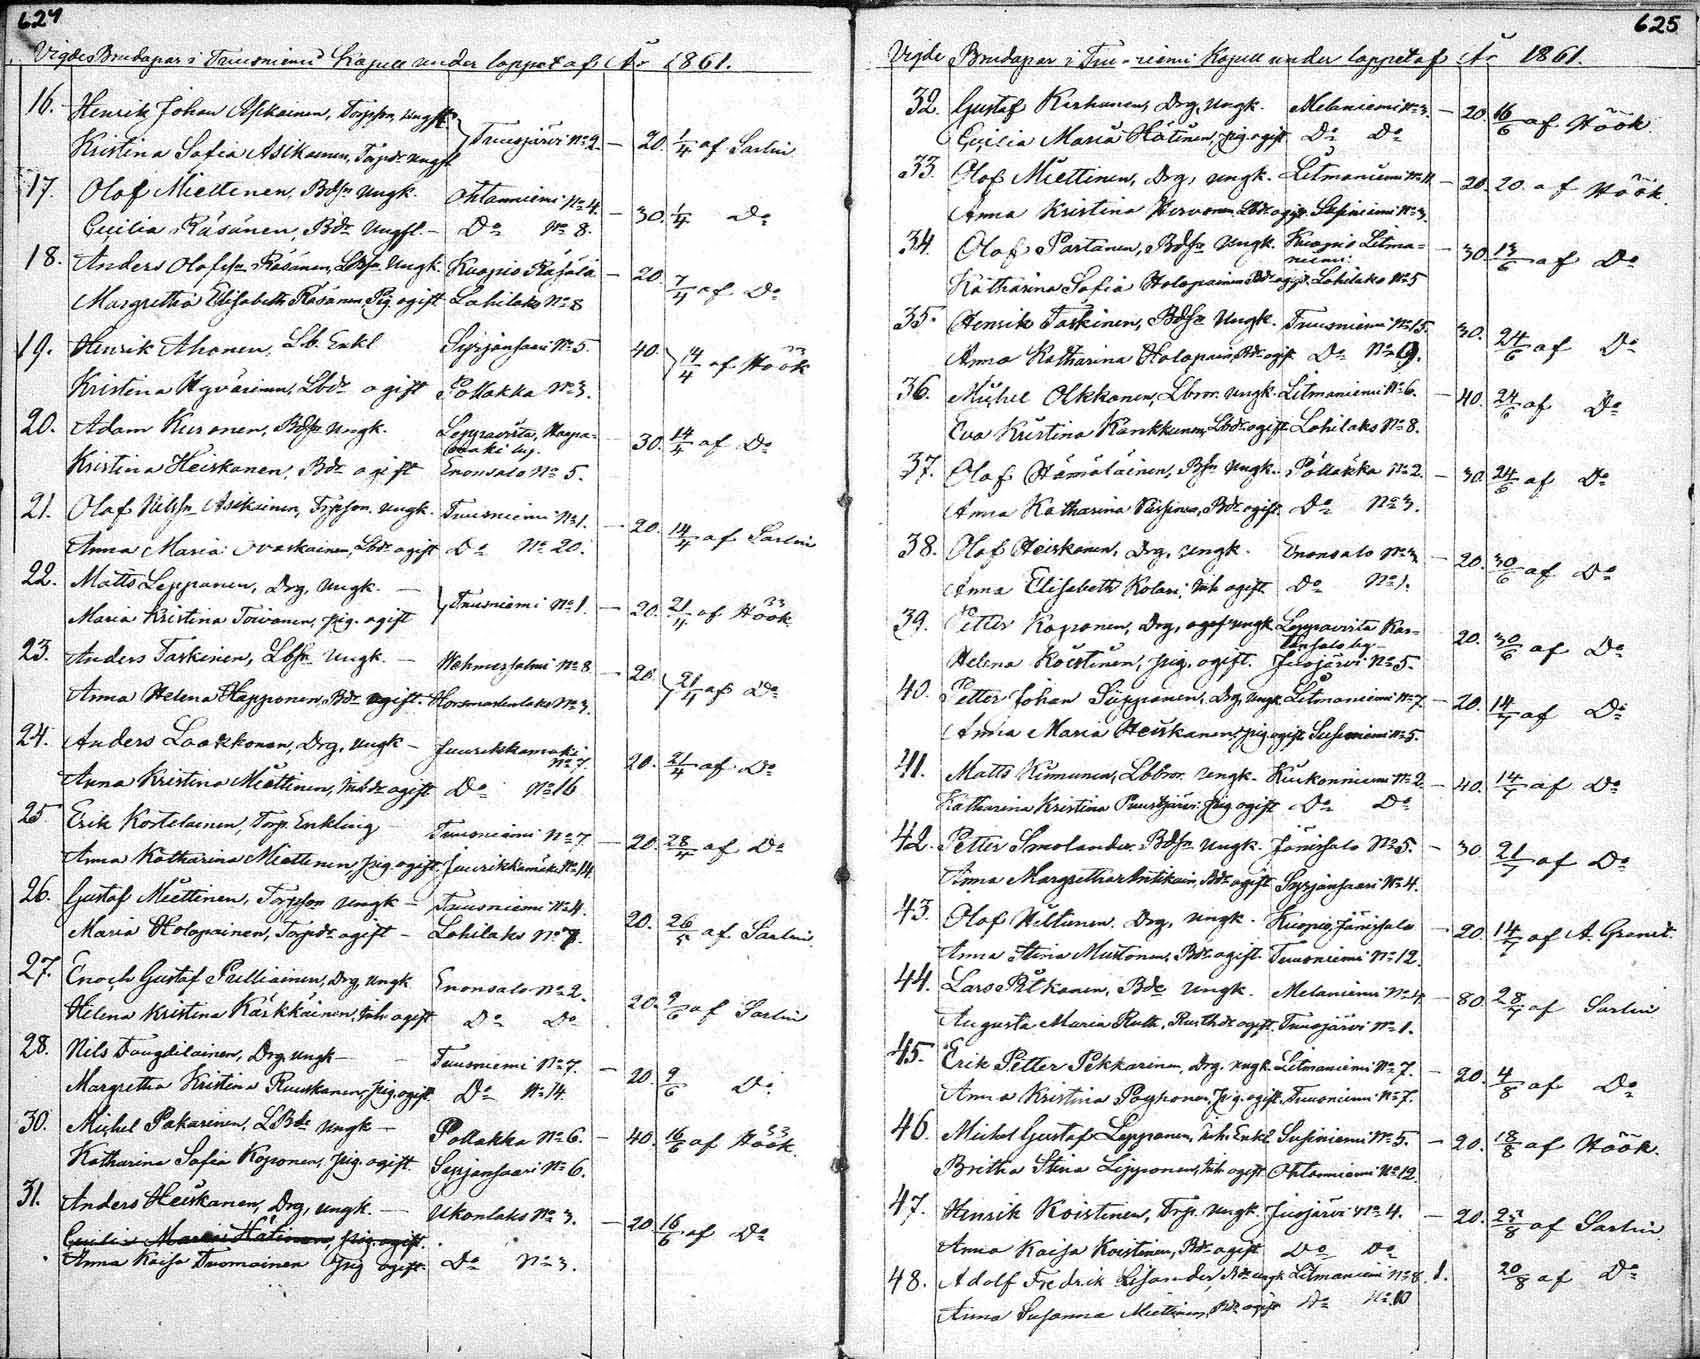 624
Vigde Brudapar i Tuusniemi Kapell under loppet af År 1861.
16. Henrik Johan Asikainen, Torpson, ungk. Tuusjärvi No 2. — 20. 1/4 af Sarlin
Kristina Sofia Asikainen, Torpdr ogift
17. Olof Miettinen, Bdsn ungk. Ohtaniemi No 4. — 30. 1/4 Do
Cecilia Räsänen, Bdr — Do No 8.
18. Anders Olofsn Räsänen, Lbsn ungk. Kuopio — 20. 7/4 af Do
Margretha Elisabeth Räsänen Pig ogift Lohilaks No 8
19. Henrik Ahonen, Lb. Enkl Syrjänsaari No 5. 40. 14/4 af Höök
Kristina Hyvärinen, Lbdr ogift Pollakka No 3.
20. Adam Kuronen, Bdsn ungk. Leppävirta, — 30. 14/4 af Do
mäki by.
Kristina Heiskanen, Bdr ogift Enonsalo No 5.
21. Olof Nilssn Asikainen, Torpson. ungk. Tuusniemi No 1. — 20. 14/4 af Sarlin
Anna Maria Ovaskainen, Lbdr ogift Do No 20.
22. Matts Leppänen, Drg, ungk. — Tuusniemi No 1. — 20. 21/4 af Höök
Maria Kristina Toivanen, pig. ogift
23. Anders Taskinen, Lbsn ungk. — Wehmersalmi No 8 — 20. 21/4 af Do
Anna Helena Happonen, Bdr ogift. Horsmanlaks No 3.
24. Anders Laakkonen, Drg, ungk — Juurikkamäki No 7. 20. 21/4 af Do
Anna Kristina Miettinen, Inhdr ogift Do No 16
25 Erik Kostelainen, Torp. Enkling Tuusniemi No 7 — 20. 28/4 af Do
Anna Katharina Miettinen, pig. ogift. Juurikkamäki No 14.
26. Gustaf Miettinen, Torpson ungk — Tuusniemi No 4. 20. 26/5 af Sarlin
Maria Holopainen, Torpdr ogift — Lohilaks No 7.
27. Enoch Gustaf Pulliainen, Drg, ungk Enonsalo No 2. 20. 9/6 af Sarlin
Helena Kristina Kärkkäinen, Inh. ogift Do Do
28. Nils Taugdilainen, Drg. ungk — Tuusniemi No 7. — 20 9/6 Do
Margretha Kristina Ruuskanen, pig. ogift Do No 14.
30. Michel Pakarinen, LBde ungk — Pollakka No 6. — 40. 16/6 af Höök.
Katharina Sofia Koponen, pig. ogift. Syrjänsaari No 6.
31. Anders Heiskanen, Drg, ungk. — Ukonlaks No 3. — 20 16/6 af Do
Cecilia Maria Hätinen, pig. ogift.
Anna Kaisa Tuomainen Pig ogift. Do No 3.
625
Vigde Brudapar i Tuusniemi Kapell under loppet af År 1861.
32. Gustaf Karhunen, Drg, ungk. Melaniemi No 3. — 20. 16/6 af Höök
Cecilia Maria Hätinen, pig. ogift Do Do
33. Olof Miettinen, Drg, ungk. Litmaniemi No 11. — 20. 20. af Höök.
Anna Kristina Hirvonen, Lbdr ogift. Susiniemi No 3.
34. Olof Partanen, Bdsn ungk. Kuopio Litma- — 30. 13/6 af Do
niemi.
Katharina Sofia Holopainen Bdr ogift. Lohilaks No 5
35. Henrik Taskinen, Bdsn ungk. Tuusniemi No 15. 30. 24/6 af Do
Anna Katharina Holopain, Bdr ogift Do No 9.
36. Michel Olkkonen, Lbror. ungk. Litmaniemi No 6. — 40. 24/6 af Do
Eva Kristina Kankkunen, Lbdr ogift Lohilaks No 8.
37. Olof Hämäläinen, Bsn ungk. Pollakka No 2. — 30. 24/6 af Do
Anna Katharina Bdr ogift. Do No 3.
38. Olof Heiskanen, Drg, ungk. Enonsalo No 3. — 20. 30/6 af Do
Anna Elisabeth Kolari, Inh ogift. Do No 1.
39. Petter Koponen, Drg, ungk Leppävirta Kon- 20. 30/6 af Do
nusalo by —
Helena Koistinen, pig. ogift. Juojärvi No 5.
40. Petter Johan Süpponen, Drg, ungk. Litmaniemi No 7 — 20. 14/7 af Do
Anna Maria Heiskanen, pig. ogift Susiniemi No 5.
41. Matts Kinnunen, Lbbror. ungk. Kiukonniemi No 2. — 40. 14/7 af Do
Katharina Kristina Puustjärvi, Pig ogift Do Do
42. Petter Smolander, Bdsn ungk. Jänissalo No 5. — 30 21/7 af Do
Anna Margretha Antikain, Bdr ogift Syrjänsaari No 4.
43. Olof Hiltunen, Drg, ungk. Kuopio, Jänissalo — 20. 14/7 af A. Granit.
Anna Stina Mustonen, Bdr ogift. Tuusniemi No 12.
44. Lars Pitkänen, Bde ungk. Melaniemi No 4. — 80. 28/7 af Sarlin
Augusta Maria Ruth, Rusthdr ogift. Tuusjärvi No 1.
45. Erik Petter Pekkarinen, Drg. ungk. Litmaniemi No 7. — 20. 4/8 af Do
Anna Kristina Poyhonen, Pig. ogift. Tuusniemi No 7.
46. Michel Gustaf Leppänen, Inh. Enkl Susiniemi No 5. — 20. 18/8 af Höök.
Britha Stina Lipponen, Inh ogift Ohtaniemi No 12.
47. Henrik Koistinen, Trp. ungk. Juojärvi No 4. — 20. 25/8 af Sarlin
Anna Kaisa Koistinen, Bdr ogift Do Do
48. Adolf Fredrik Lisander, Bdr ungk Litmaniemi No 8. 1. 20/8 af Do
Anna Susanna Miettinen, Bdr ogift Do No 10